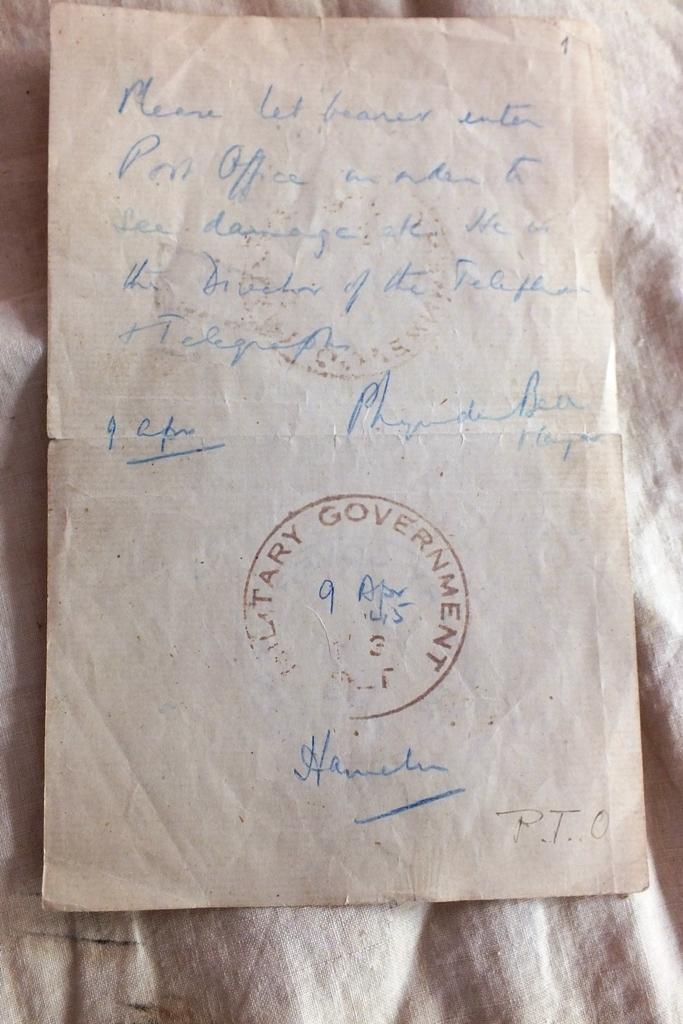 1
Please let bearer enter
Post Office in order to
see damage etc. He is
the Director of the Telephone
+ Telegraph
9 Apr
Major
MILITARY GOVERNMENT
9 Apr
45
Hameln
P.T.O